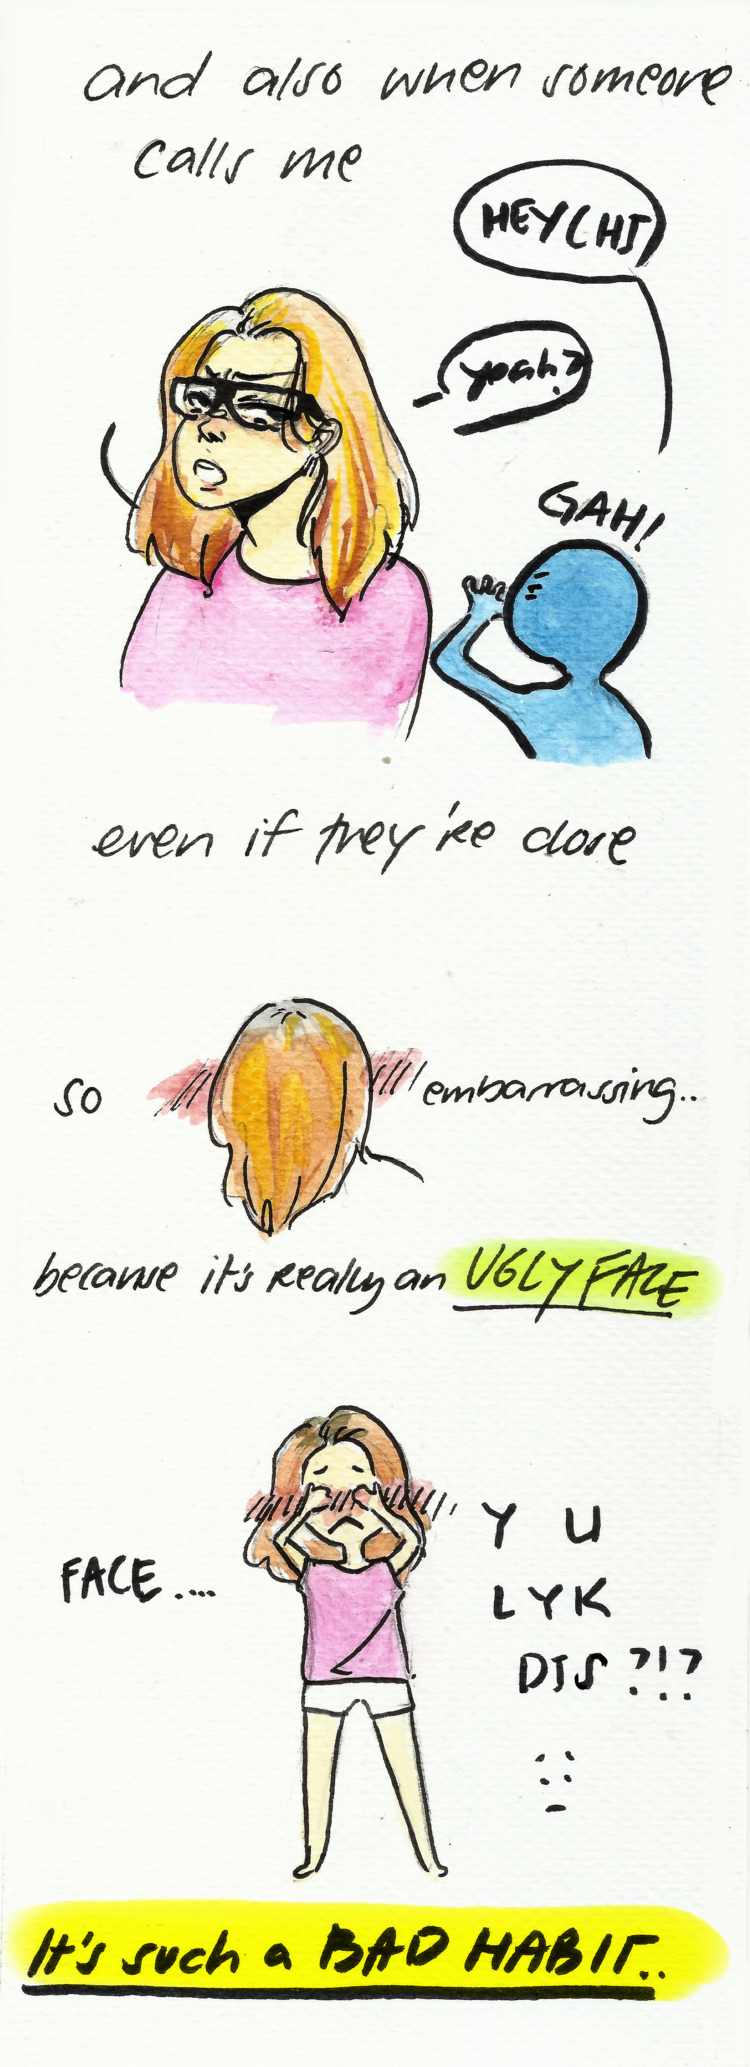 and also when someone
calls me
HEY CHI
yeah?
GAH!
even if they're close
so
embarrassing..
because it's really an UGLY FACE
FACE....
Y U
LYK
DIS?!?
It's such a BAD HABIT..